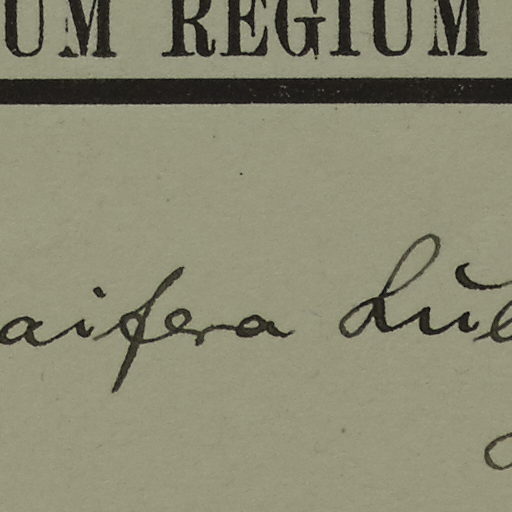 UM REGIUM
aifera Lü